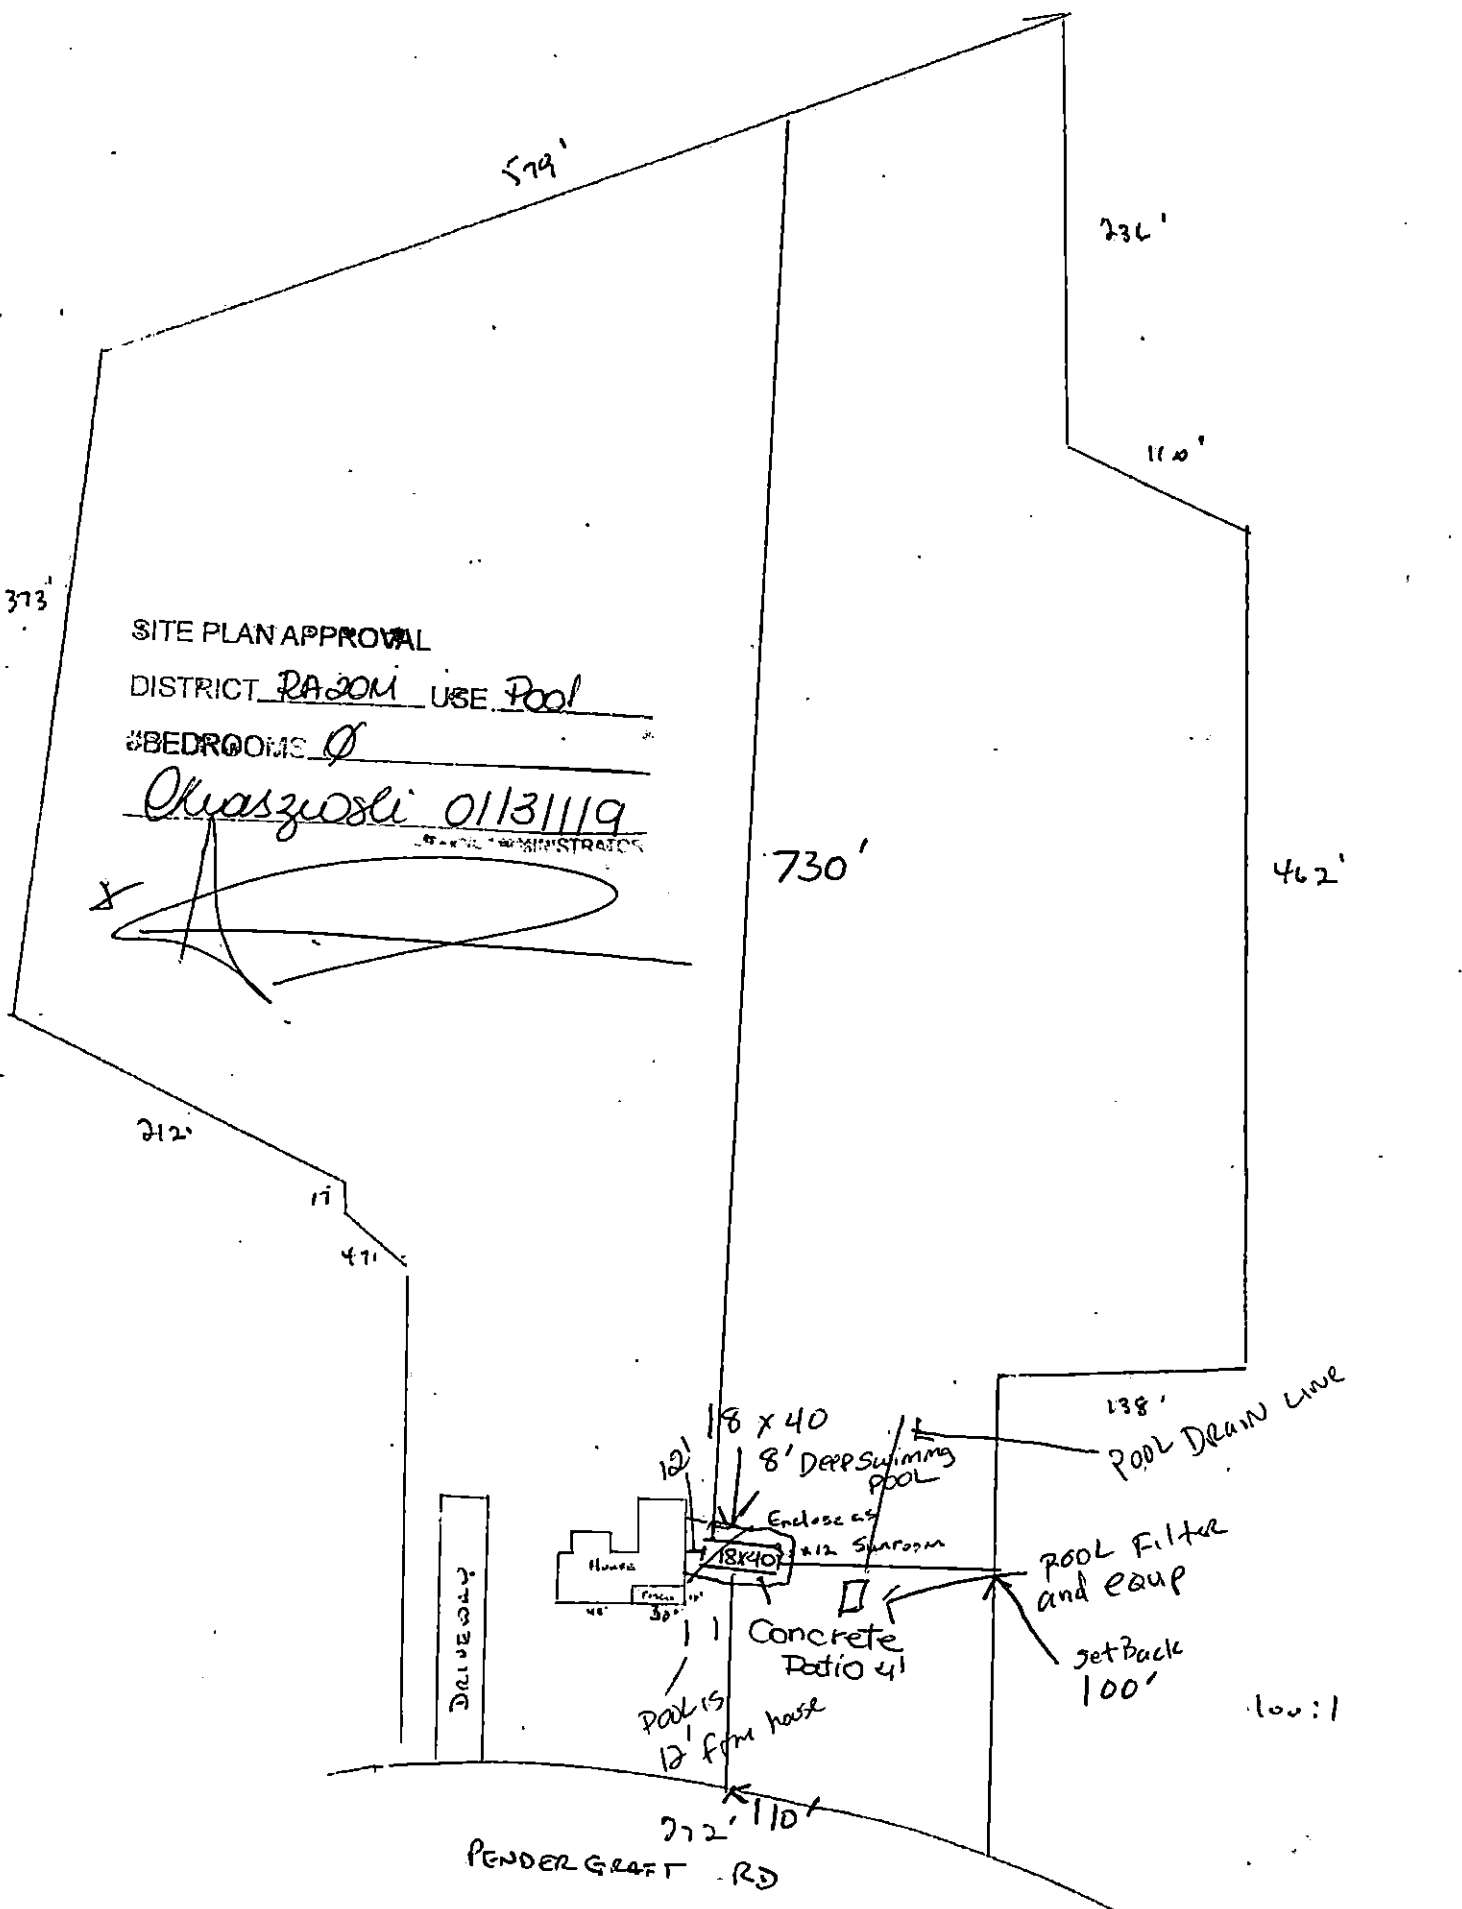 579'
236'
110'
373'
SITE PLAN APPROVAL
DISTRICT RA20M USE Pool
#BEDROOMS Ø
01/31/19
ADMINISTRATOR
X
730'
462'
212'
17'
47'
138'
POOL DRAIN LINE
18 x 40
8' Deep Swimming
POOL
12'
Enclose as
x12 Sunroom
18x40
House
Porch
POOL Filter
and equp
setBack
100'
100:1
Concrete
Patio 4'
POOL is
12' from house
DRIVEWAY
110'
PENDERGRAFT RD